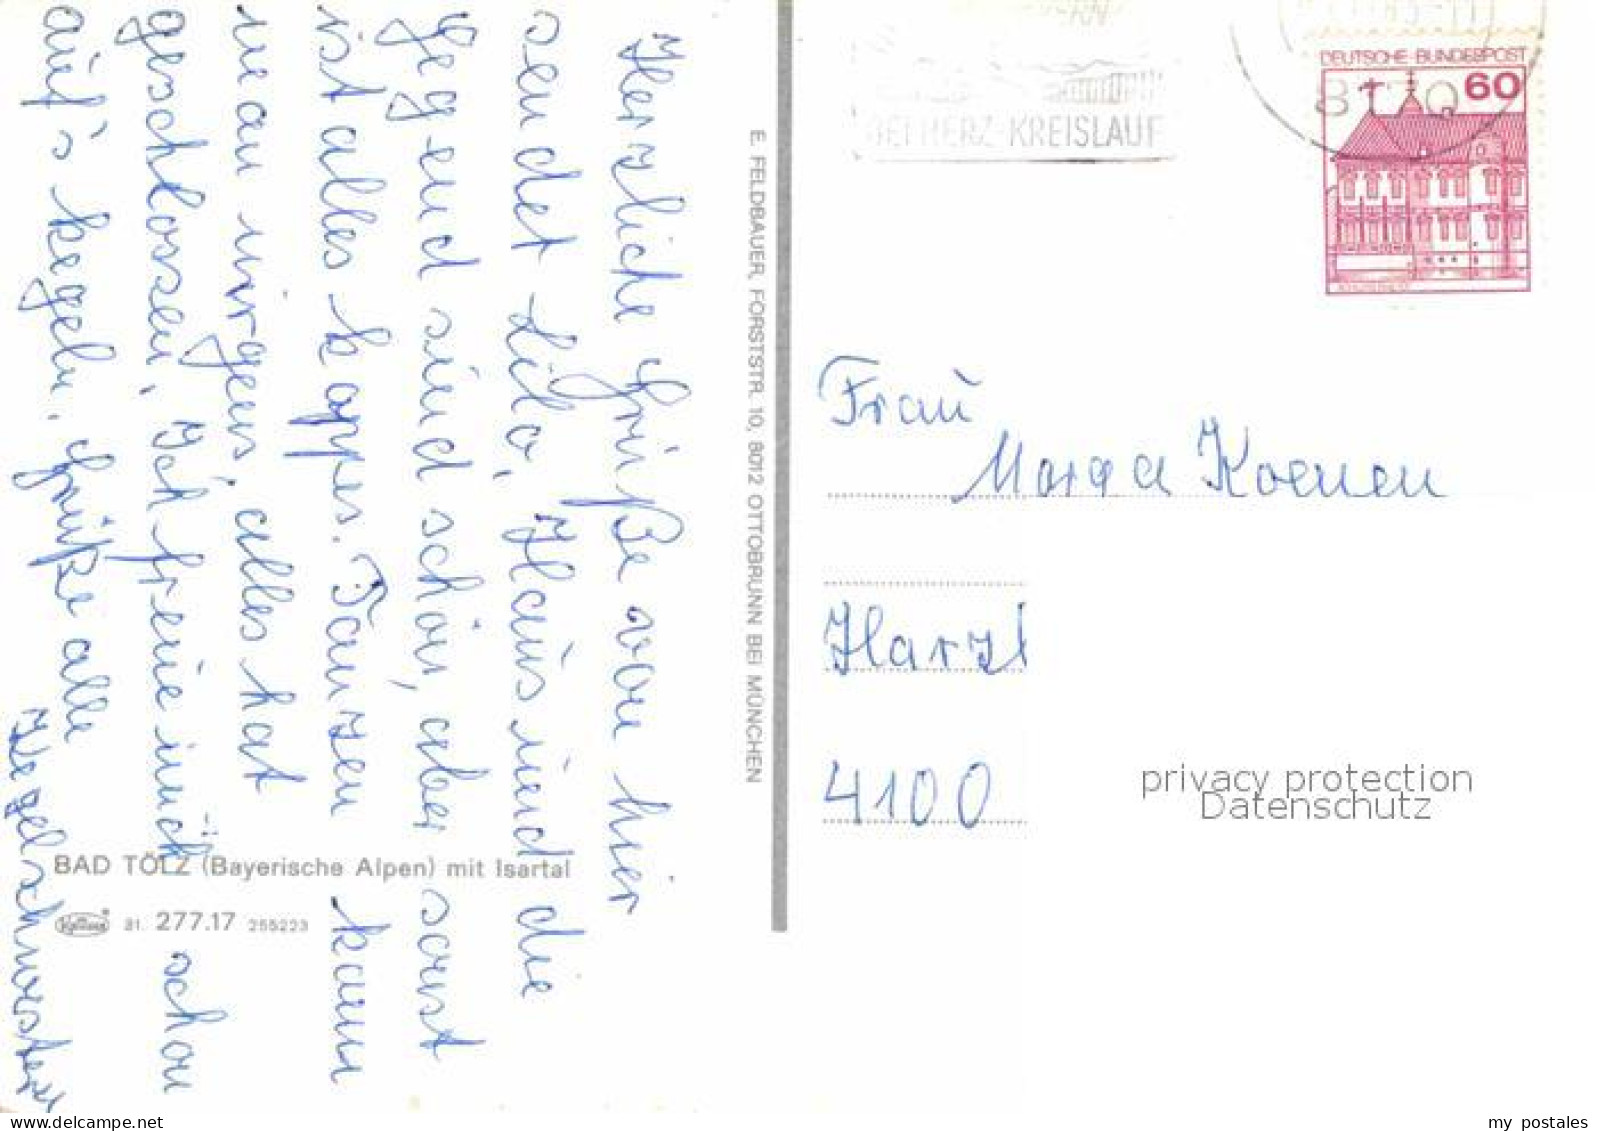 Herzliche Grüße von hier
sendet Lilo, Haus und die
Gegend sind schön, aber sonst
ist alles kappes. Tanzen kann
man nirgens, alles hat
geschlossen, Ich freue mich schon
auf's kegeln, Grüße alle
Kegelschwestern
BAD TÖLZ (Bayerische Alpen) mit Isartal
31. 277.17 255223
E. FELDBAUER, FORSTSTR. 10, 8012 OTTOBRUNN BEI MÜNCHEN
HERZ-KREISLAUF
DEUTSCHE BUNDESPOST
60
Frau
Marga Koenen
4100
privacy protection
Datenschutz
my postales